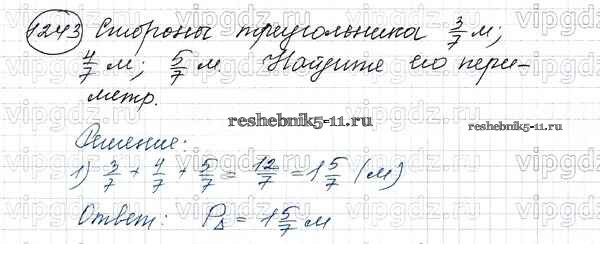 1243 Стороны треугольника 3/7 м;
4/7 м; 5/7 м. Найдите его пери-
метр.
reshebnik5-11.ru
reshebnik5-11.ru
Решение:
1) 3/7 + 4/7 + 5/7 = 12/7 = 1 5/7 (м)
Ответ: P∆ = 1 5/7 м